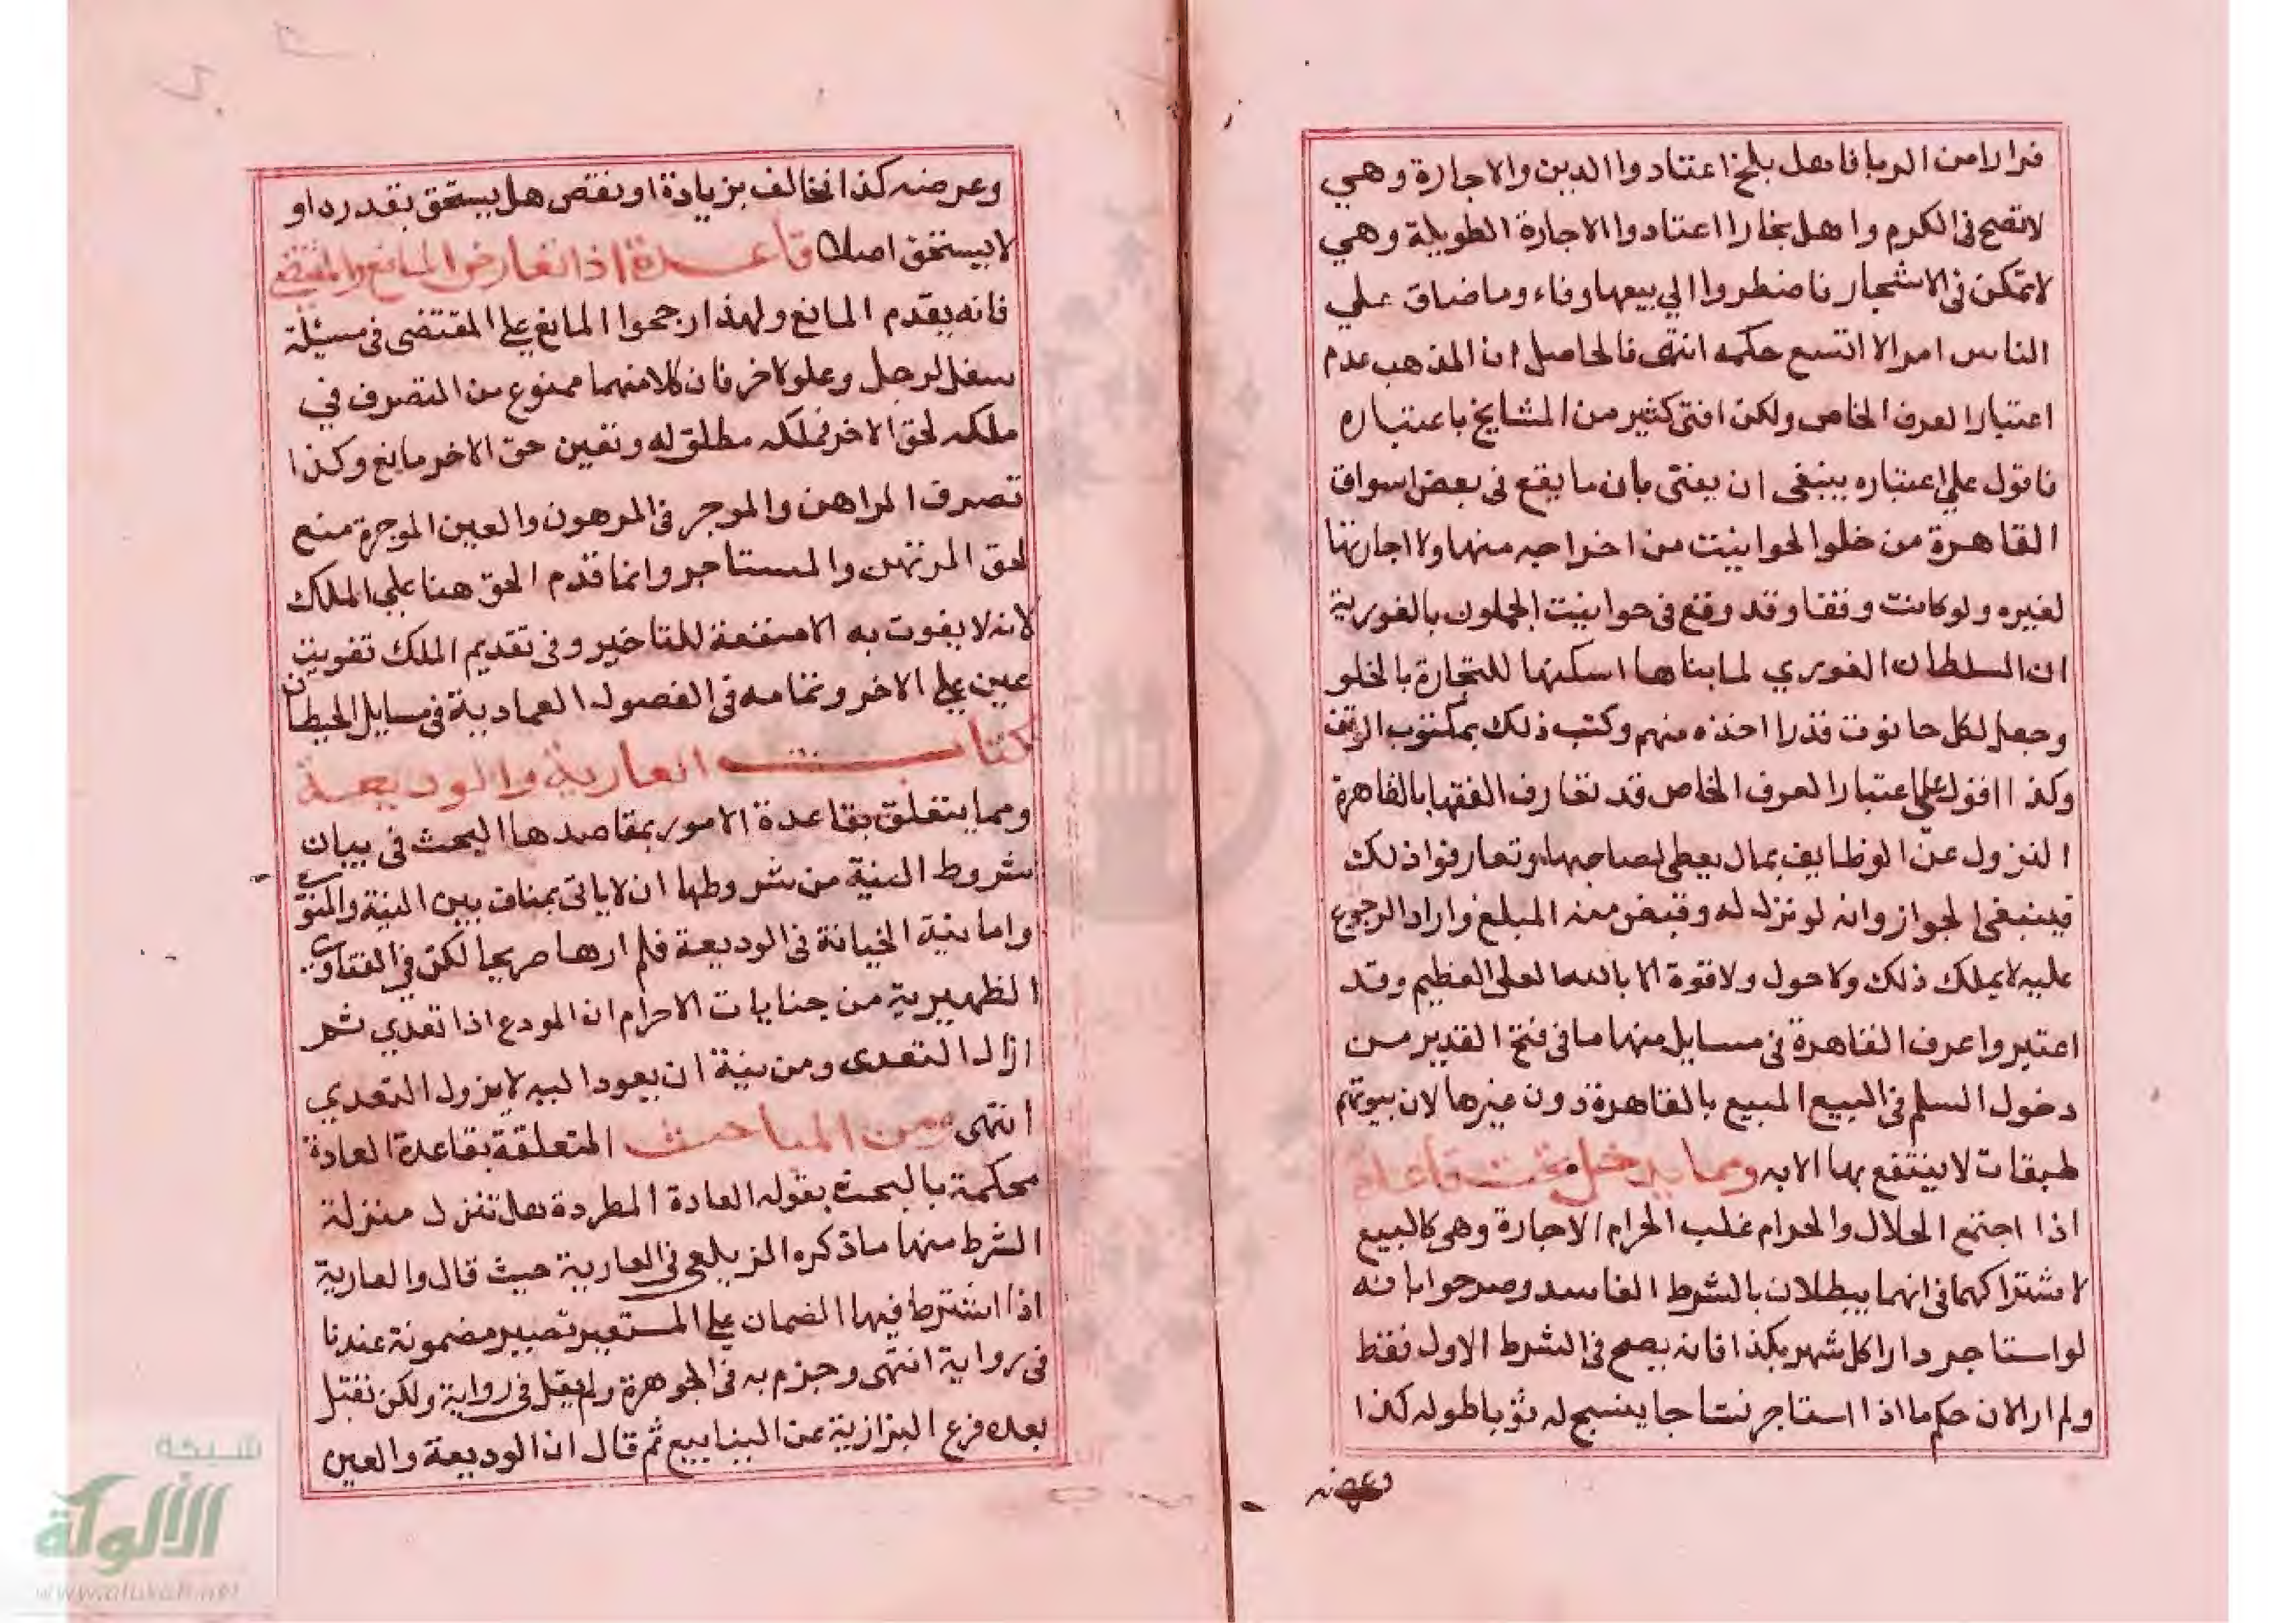 فرارا من الربا فاهل بلخ اعتادوا الدين والاجارة وهي
لا تصح في الكرم واهل بخارا اعتادوا الاجارة الطويلة وهي
لا تمكن في الاشجار فاضطروا الي بيعها وفاء وما ضاق علي
الناس امر الا اتسع حكمه انتهى فالحاصل ان المذهب عدم
اعتبار العرف الخاص ولكن افتى كثير من المشايخ باعتباره
فاقول علي اعتباره ينبغي ان يفتى بان ما يقع في بعض اسواق
القاهرة من خلو الحوانيت من اخراجه منها ولا اجارتها
لغيره ولو كانت وقفا وقد وقع في حوانيت الجملون بالغورية
ان السلطان الغوري لما بناها اسكنها للتجارة بالخلو
وجعل لكل حانوت قدرا اخذه منهم وكتب ذلك بمكتوب الوقف
وكذا اقول علي اعتبار العرف الخاص قد تعارف الفقها بالقاهرة
النزول عن الوظايف بمال يعطى لصاحبها وتعارفوا ذلك
فينبغي الجواز وانه لو نزل له وقبض منه المبلغ واراد الرجوع
عليه لا يملك ذلك ولا حول ولا قوة الا بالله العلي العظيم وقد
اعتبروا عرف القاهرة في مسايل منها ما في فتح القدير من
دخول السلم في البيع المبيع بالقاهرة دون غيرها لان بيوتهم
طبقات لا ينتفع بها الا به ومما يدخل تحت قاعدة
اذا اجتمع الحلال والحرام غلب الحرام الاجارة وهي كالبيع
لاشتراكهما في انهما يبطلان بالشرط الفاسد وصرحوا بانه
لو استاجر دارا كل شهر بكذا فانه يصح في الشرط الاول فقط
ولم ار الان حكم ما اذا استاجر نساجا ينسج له ثوبا طوله كذا
وعرضه
وعرضه كذا فخالف بزيادة او نقص هل يستحق بقدره او
لا يستحق اصلا قاعدة اذا تعارض المانع والمقتضي
فانه يقدم المانع ولهذا رجحوا المانع علي المقتضى في مسئلة
سفل لرجل وعلو لاخر فان كلا منهما ممنوع من التصرف في
ملكه لحق الاخر فملكه مطلق له وتعين حق الاخر مانع وكذا
تصرف الراهن والموجر في المرهون والعين الموجرة منع
لحق المرتهن والمستاجر وانما قدم الحق هنا علي الملك
لانه لا يفوت به الا منفعة للتاخير وفي تقديم الملك تفويت
عين علي الاخر وتمامه في الفصول العمادية في مسايل الحيطان
كتاب العارية والوديعة
ومما يتعلق بقاعدة الامور بمقاصدها البحث في بيان
شروط النية من شروطها ان لا ياتي بمناف بين النية والمنوي
واما نية الخيانة في الوديعة فلم ارها صريحا لكن في الفتاوي
الظهيرية من جنايات الاحرام ان المودع اذا تعدي ثم
ازال التعدى ومن نية ان يعود اليه لا يزول التعدي
انتهى ومن المباحث المتعلقة بقاعدة العادة
محكمة بالبحث بقوله العادة المطردة هل تنزل منزلة
الشرط منها ما ذكره الزيلعي في العارية حيث قال والعارية
اذا اشترط فيها الضمان علي المستعير تصير مضمونة عندنا
في رواية انتهى وجزم به في الجوهرة ولم يقل في رواية ولكن نقل
بعده فرع البزازية عن الينابيع ثم قال ان الوديعة والعين
شبكة
الألوكة
www.alukah.net